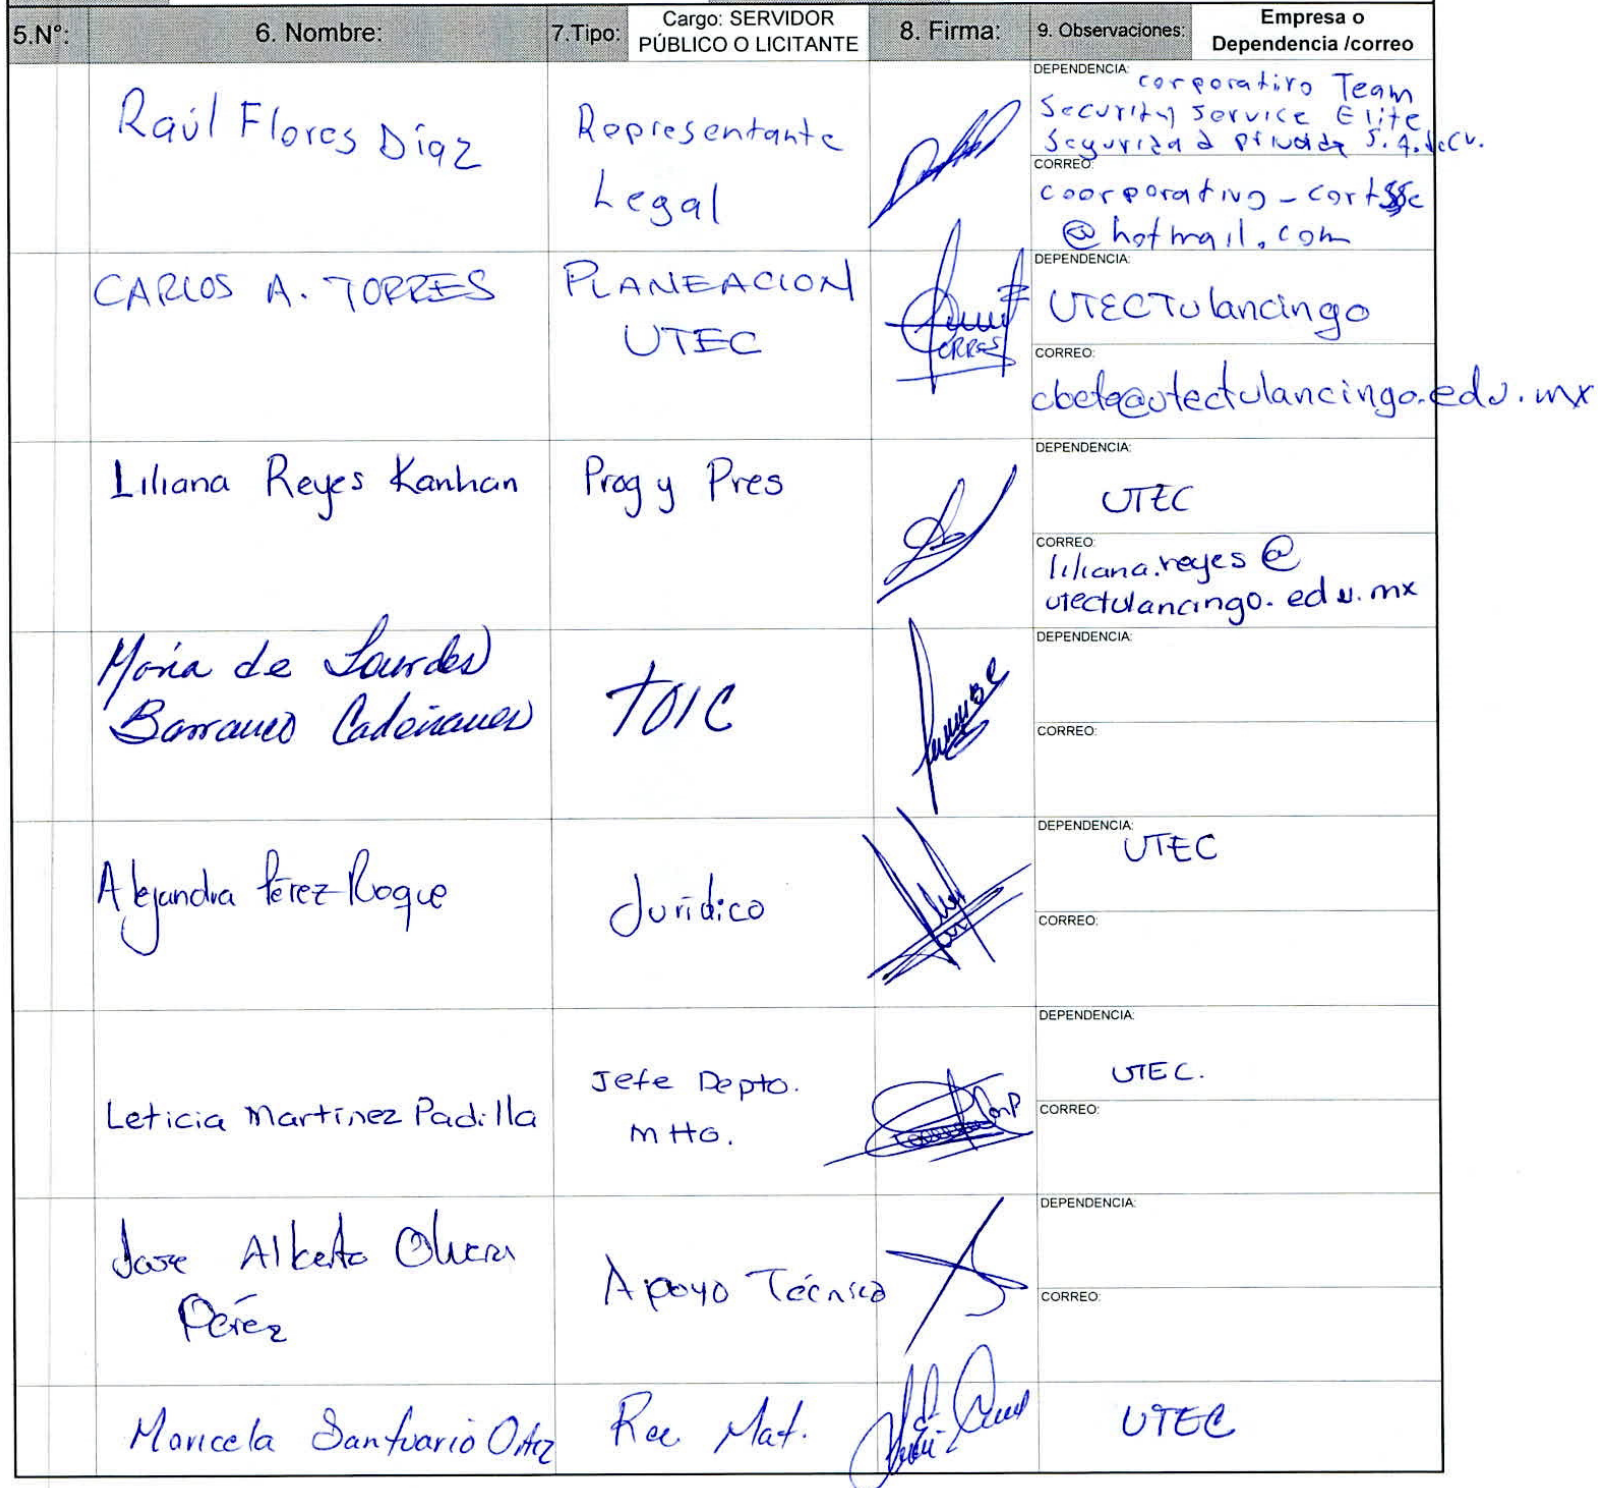 5.N°: 6. Nombre: 7.Tipo: Cargo: SERVIDOR PÚBLICO O LICITANTE 8. Firma: 9. Observaciones: Empresa o Dependencia /correo
Raúl Flores Díaz
Representante
Legal
DEPENDENCIA:
corporativo Team
Security Service Elite
Seguridad privada S.A. de C.V.
CORREO:
@hotmail.com
CARLOS A. TORRES
PLANEACION
UTEC
TORRES
DEPENDENCIA:
UTECTulancingo
CORREO:
@utectulancingo.edu.mx
Liliana Reyes Kanhan
Prog y Pres
DEPENDENCIA:
UTEC
CORREO:
liliana.reyes @
utectulancingo.edu.mx
María de Lourdes
Barranco
TOIC
DEPENDENCIA:
CORREO:
Alejandra Pérez Roque
Jurídico
DEPENDENCIA:
UTEC
CORREO:
Leticia Martínez Padilla
Jefe Depto.
MTTO.
DEPENDENCIA:
UTEC.
CORREO:
Jose Alberto Olvera
Pérez
Apoyo Técnico
DEPENDENCIA:
CORREO:
Maricela Santuario Ortiz
Rec Mat.
UTEC